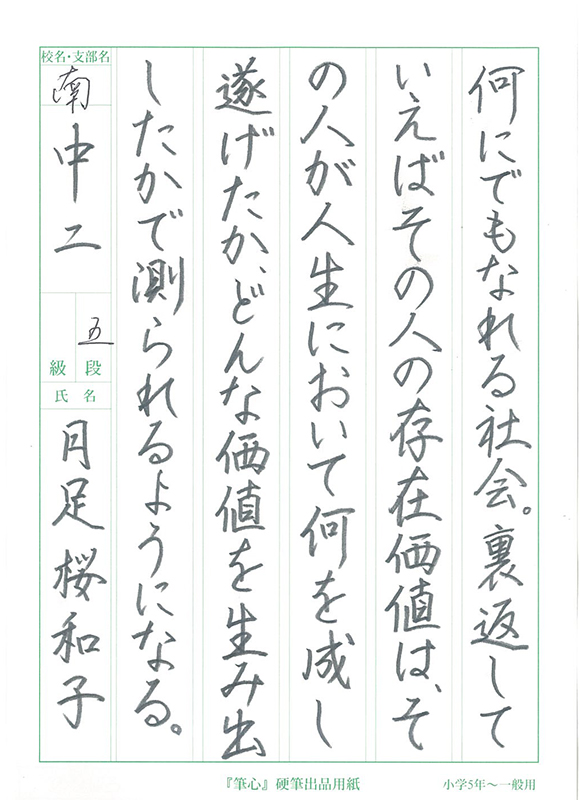 何にでもなれる社会。裏返して
いえばその人の存在価値は、そ
の人が人生において何を成し
遂げたか、どんな価値を生み出
したかで測られるようになる。
校名・支部名
南中二
五
段
級
氏名
月足桜和子
『筆心』硬筆出品用紙
小学5年〜一般用